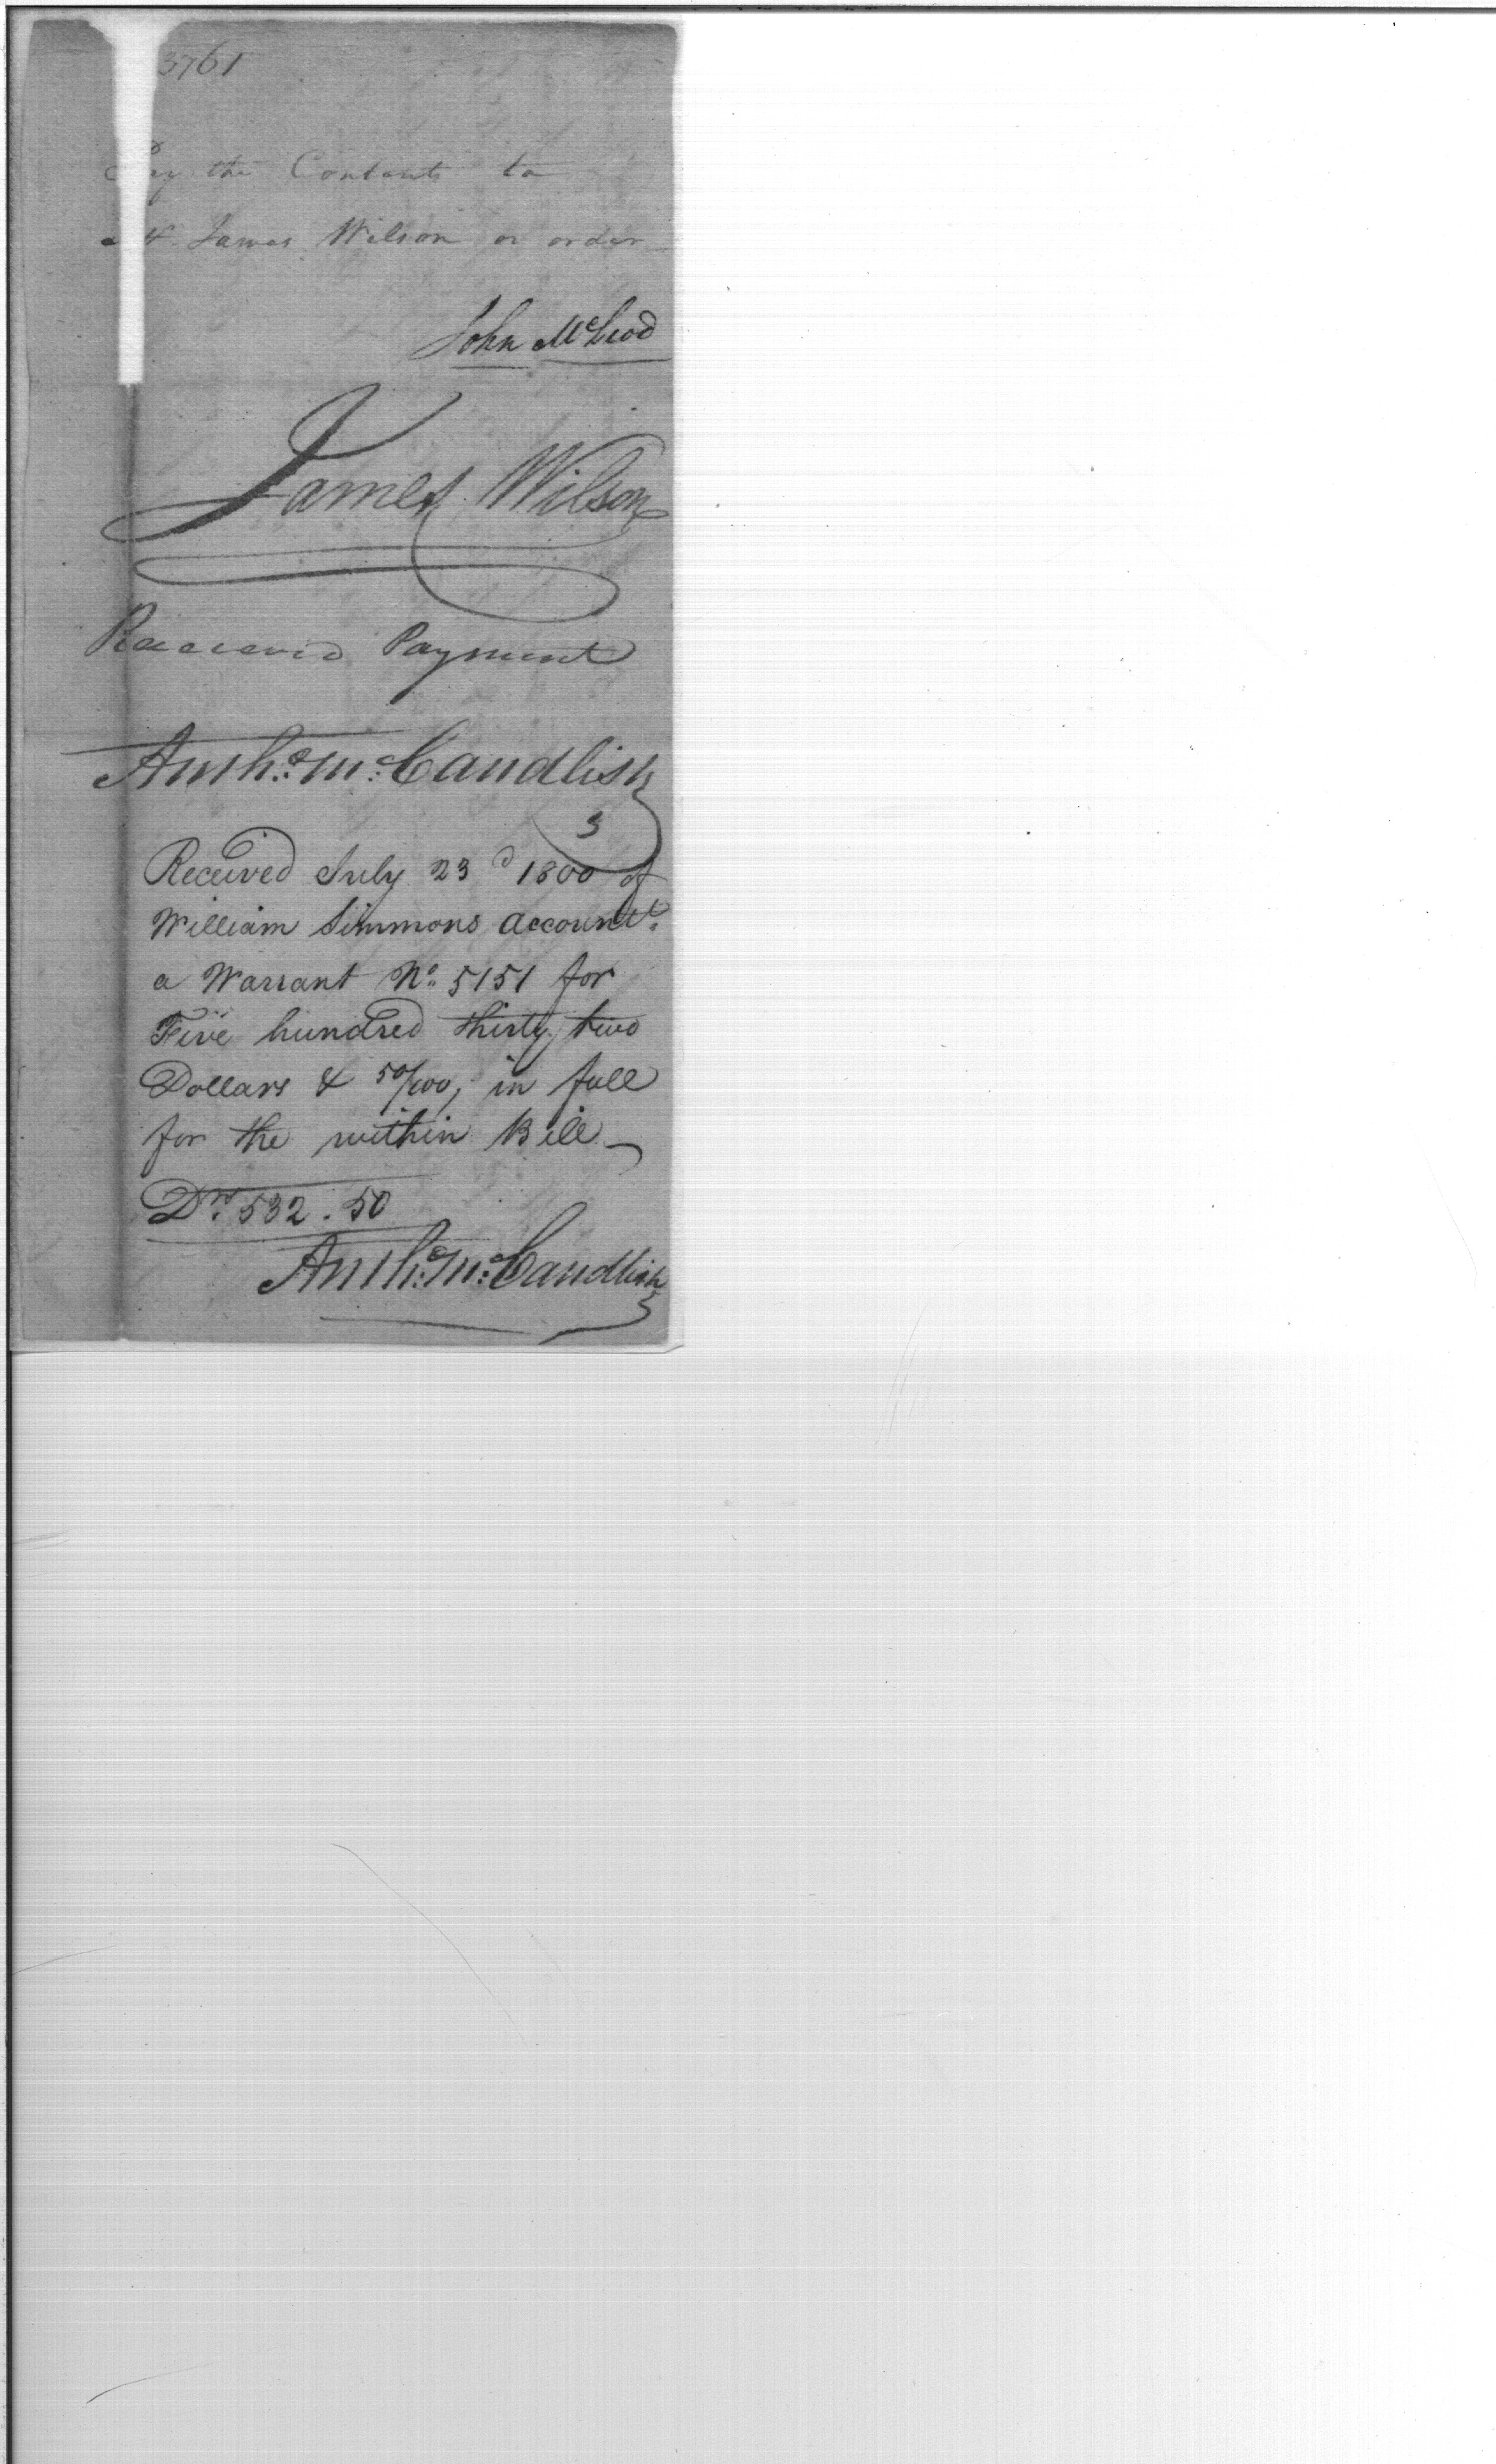 3761
Pay the Contents to
Mr. James Wilson or order
John McLeod
James Wilson
Received Payment
Anth:o Mc:Candlish
3
Received July 23d 1800 of
William Simmons accountt.
a Warrant No. 5151 for
Five hundred thirty two
Dollars & 50/100, in full
for the within Bill
Drs. 532.50
Anth:o Mc:Candlish